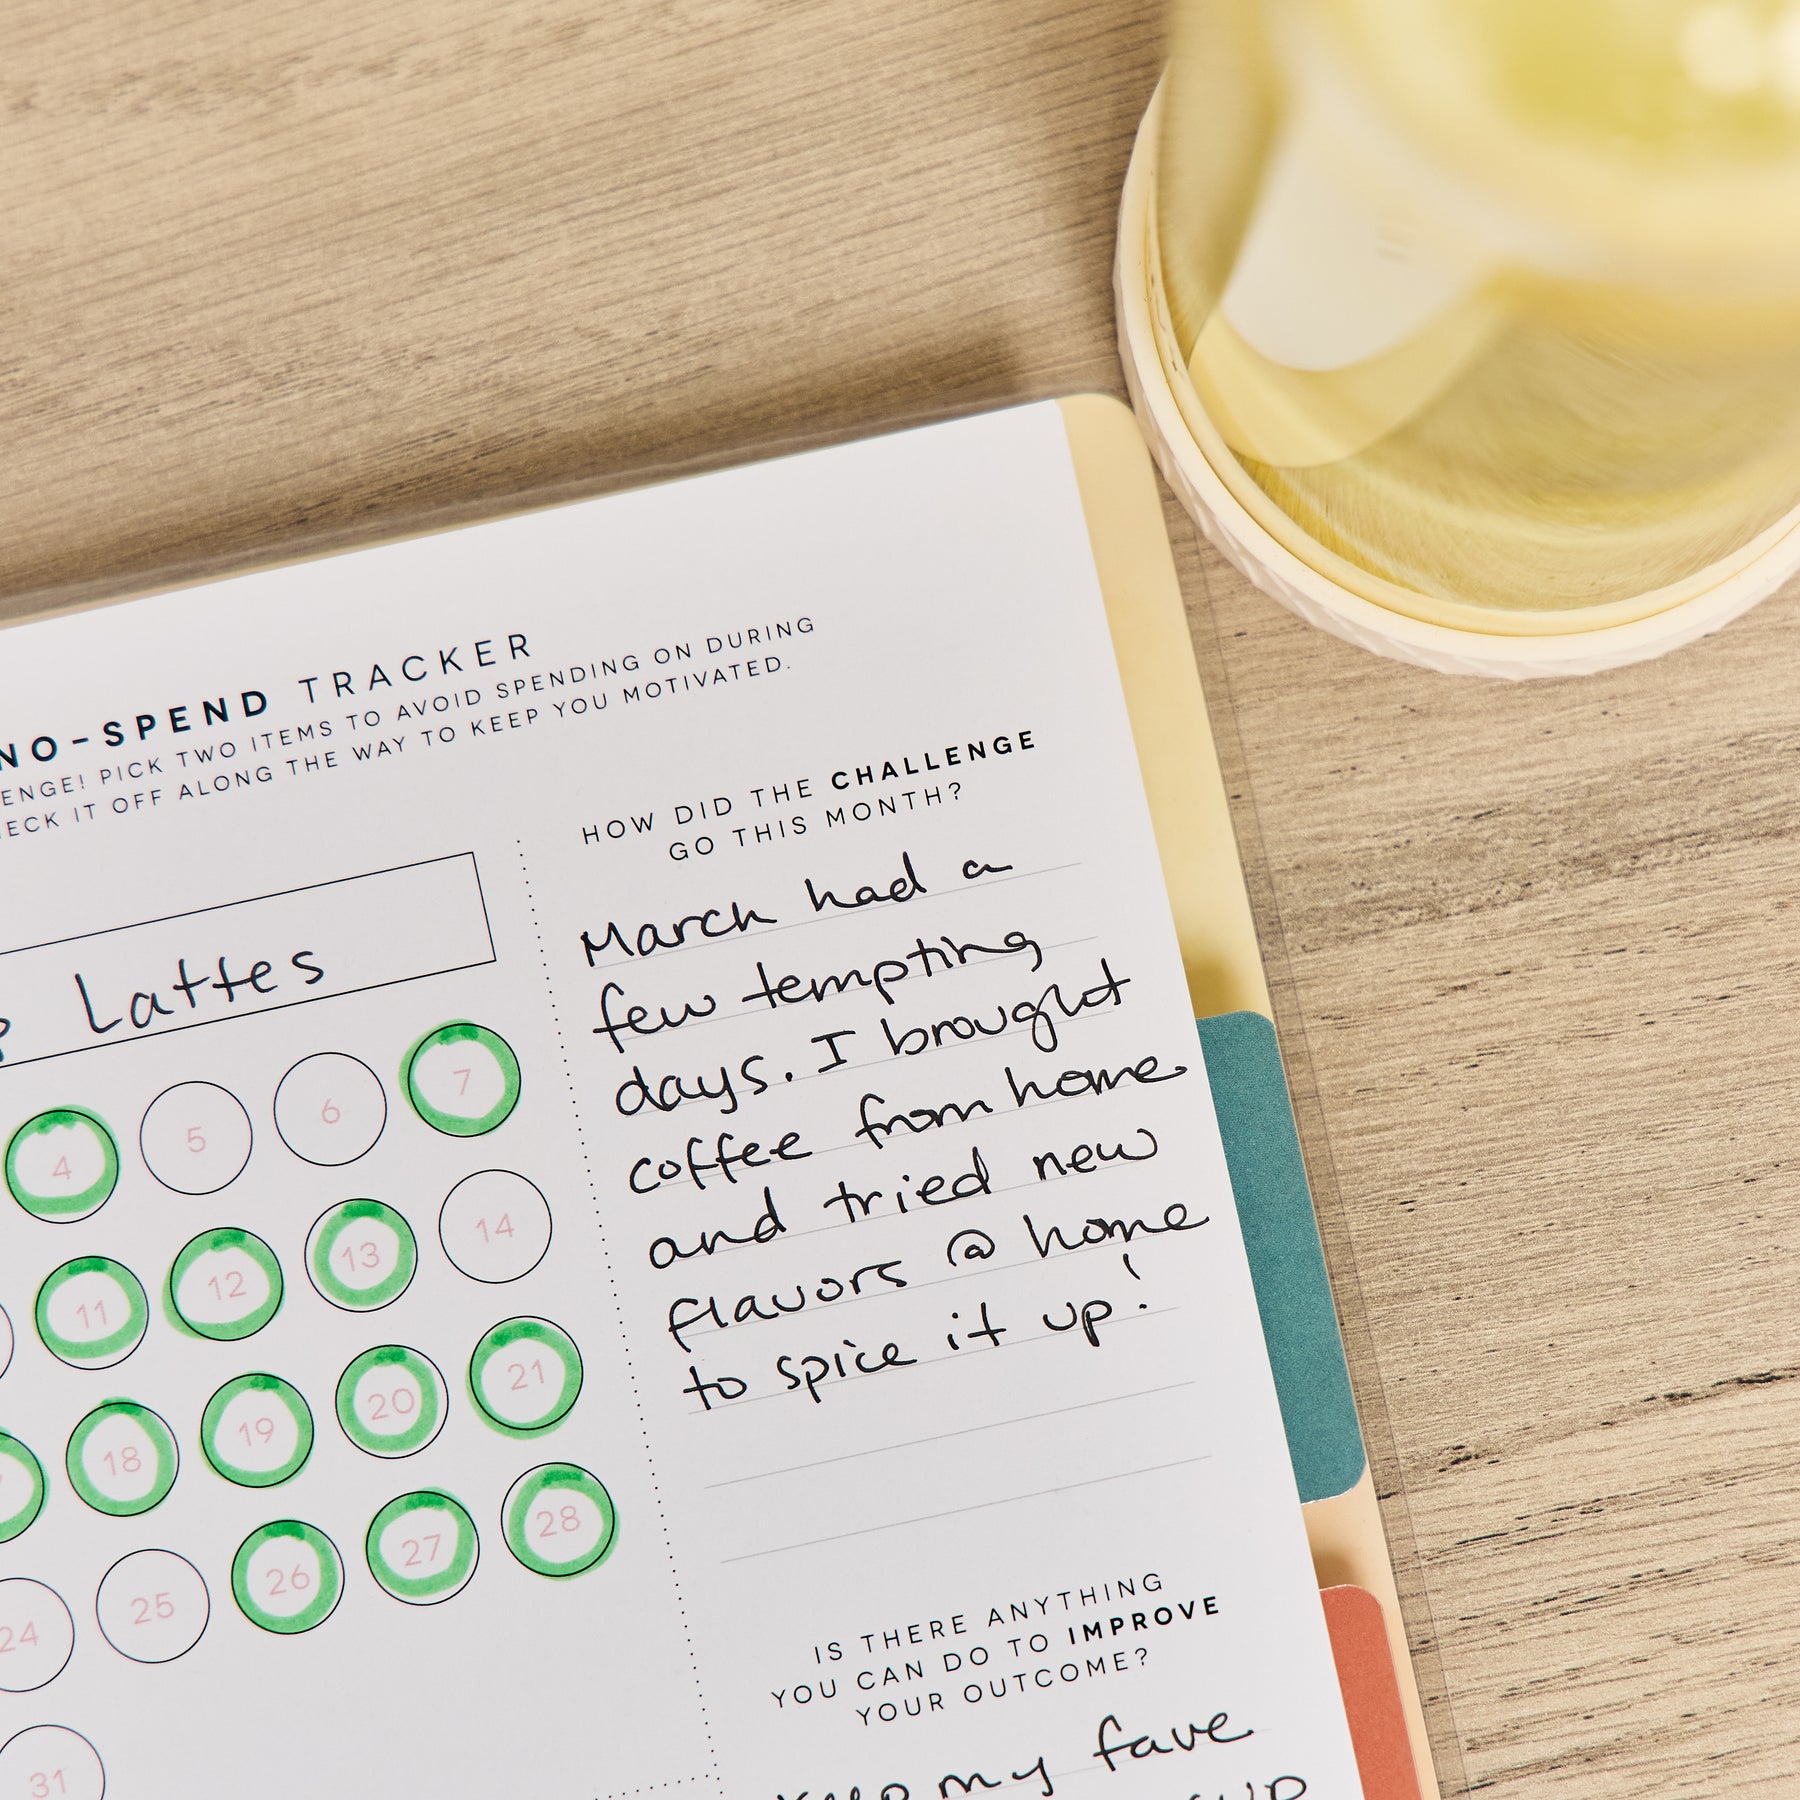 NO-SPEND TRACKER
ENGE! PICK TWO ITEMS TO AVOID SPENDING ON DURING
HECK IT OFF ALONG THE WAY TO KEEP YOU MOTIVATED.
Lattes
4 5 6 7
11 12 13 14
18 19 20 21
24 25 26 27 28
31
HOW DID THE CHALLENGE
GO THIS MONTH?
March had a
few tempting
days. I brought
coffee from home
and tried new
flavors @ home
to spice it up!
IS THERE ANYTHING
YOU CAN DO TO IMPROVE
YOUR OUTCOME?
my fave